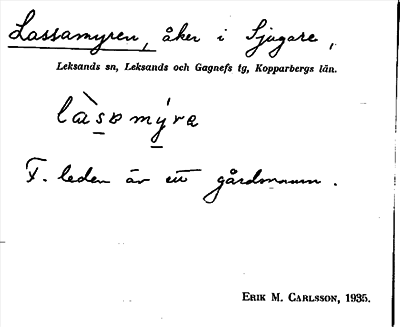 Lassamyren, åker i Sjugare,
Leksands sn, Leksands och Gagnefs tg, Kopparbergs län.
là̱sɒmý̱ra
F. leden är ett gårdsnamn.
Erik M. Carlsson, 1935.